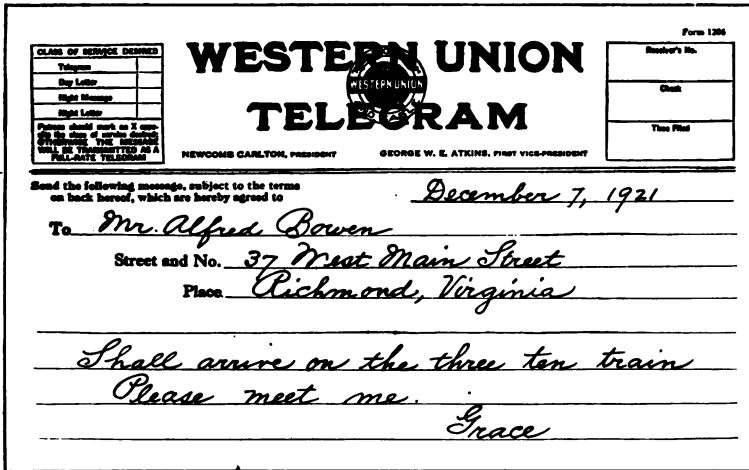 Form 1206
CLASS OF SERVICE DESIRED
Telegram
Day Letter
Night Message
Night Letter
Patrons should mark an X oppo-
site the class of service desired;
OTHERWISE THE MESSAGE
WILL BE TRANSMITTED AS A
FULL-RATE TELEGRAM
WESTERN UNION
WESTERN UNION
TELEGRAM
NEWCOMB CARLTON, PRESIDENT
GEORGE W. E. ATKINS, FIRST VICE-PRESIDENT
Receiver's No.
Check
Time Filed
Send the following message, subject to the terms
on back hereof, which are hereby agreed to
December 7, 1921
To Mr. Alfred Bowen
Street and No. 37 West Main Street
Place Richmond, Virginia
Shall arrive on the three ten train
Please meet me.
Grace